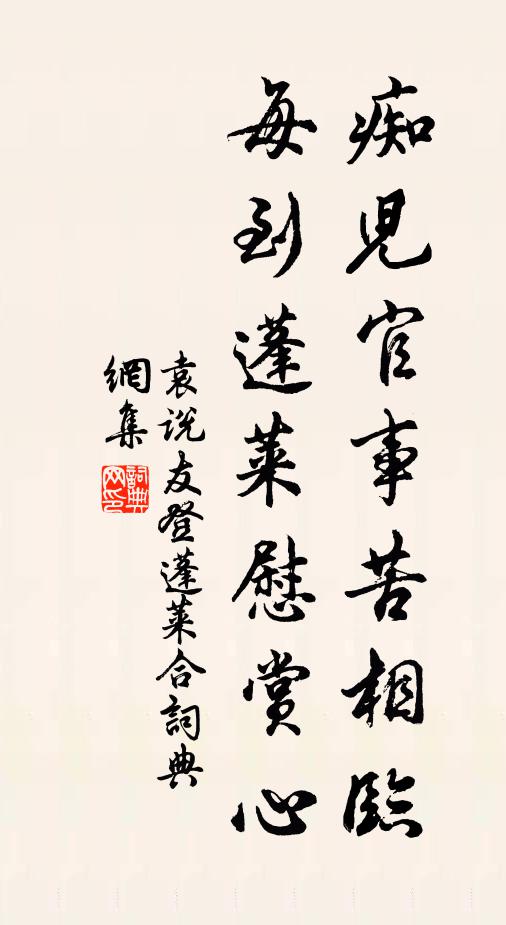 痴兒官事苦相臨
每到蓬萊慰賞心
袁説友登蓬萊合詞典
網集
詞典網印